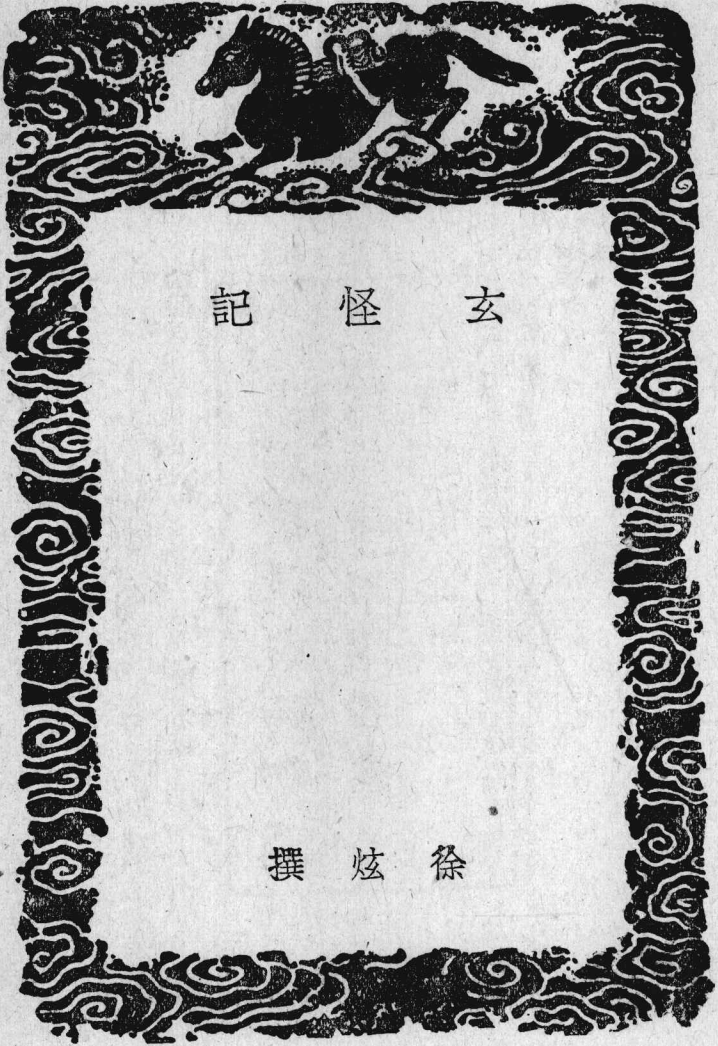 玄怪記
徐炫撰